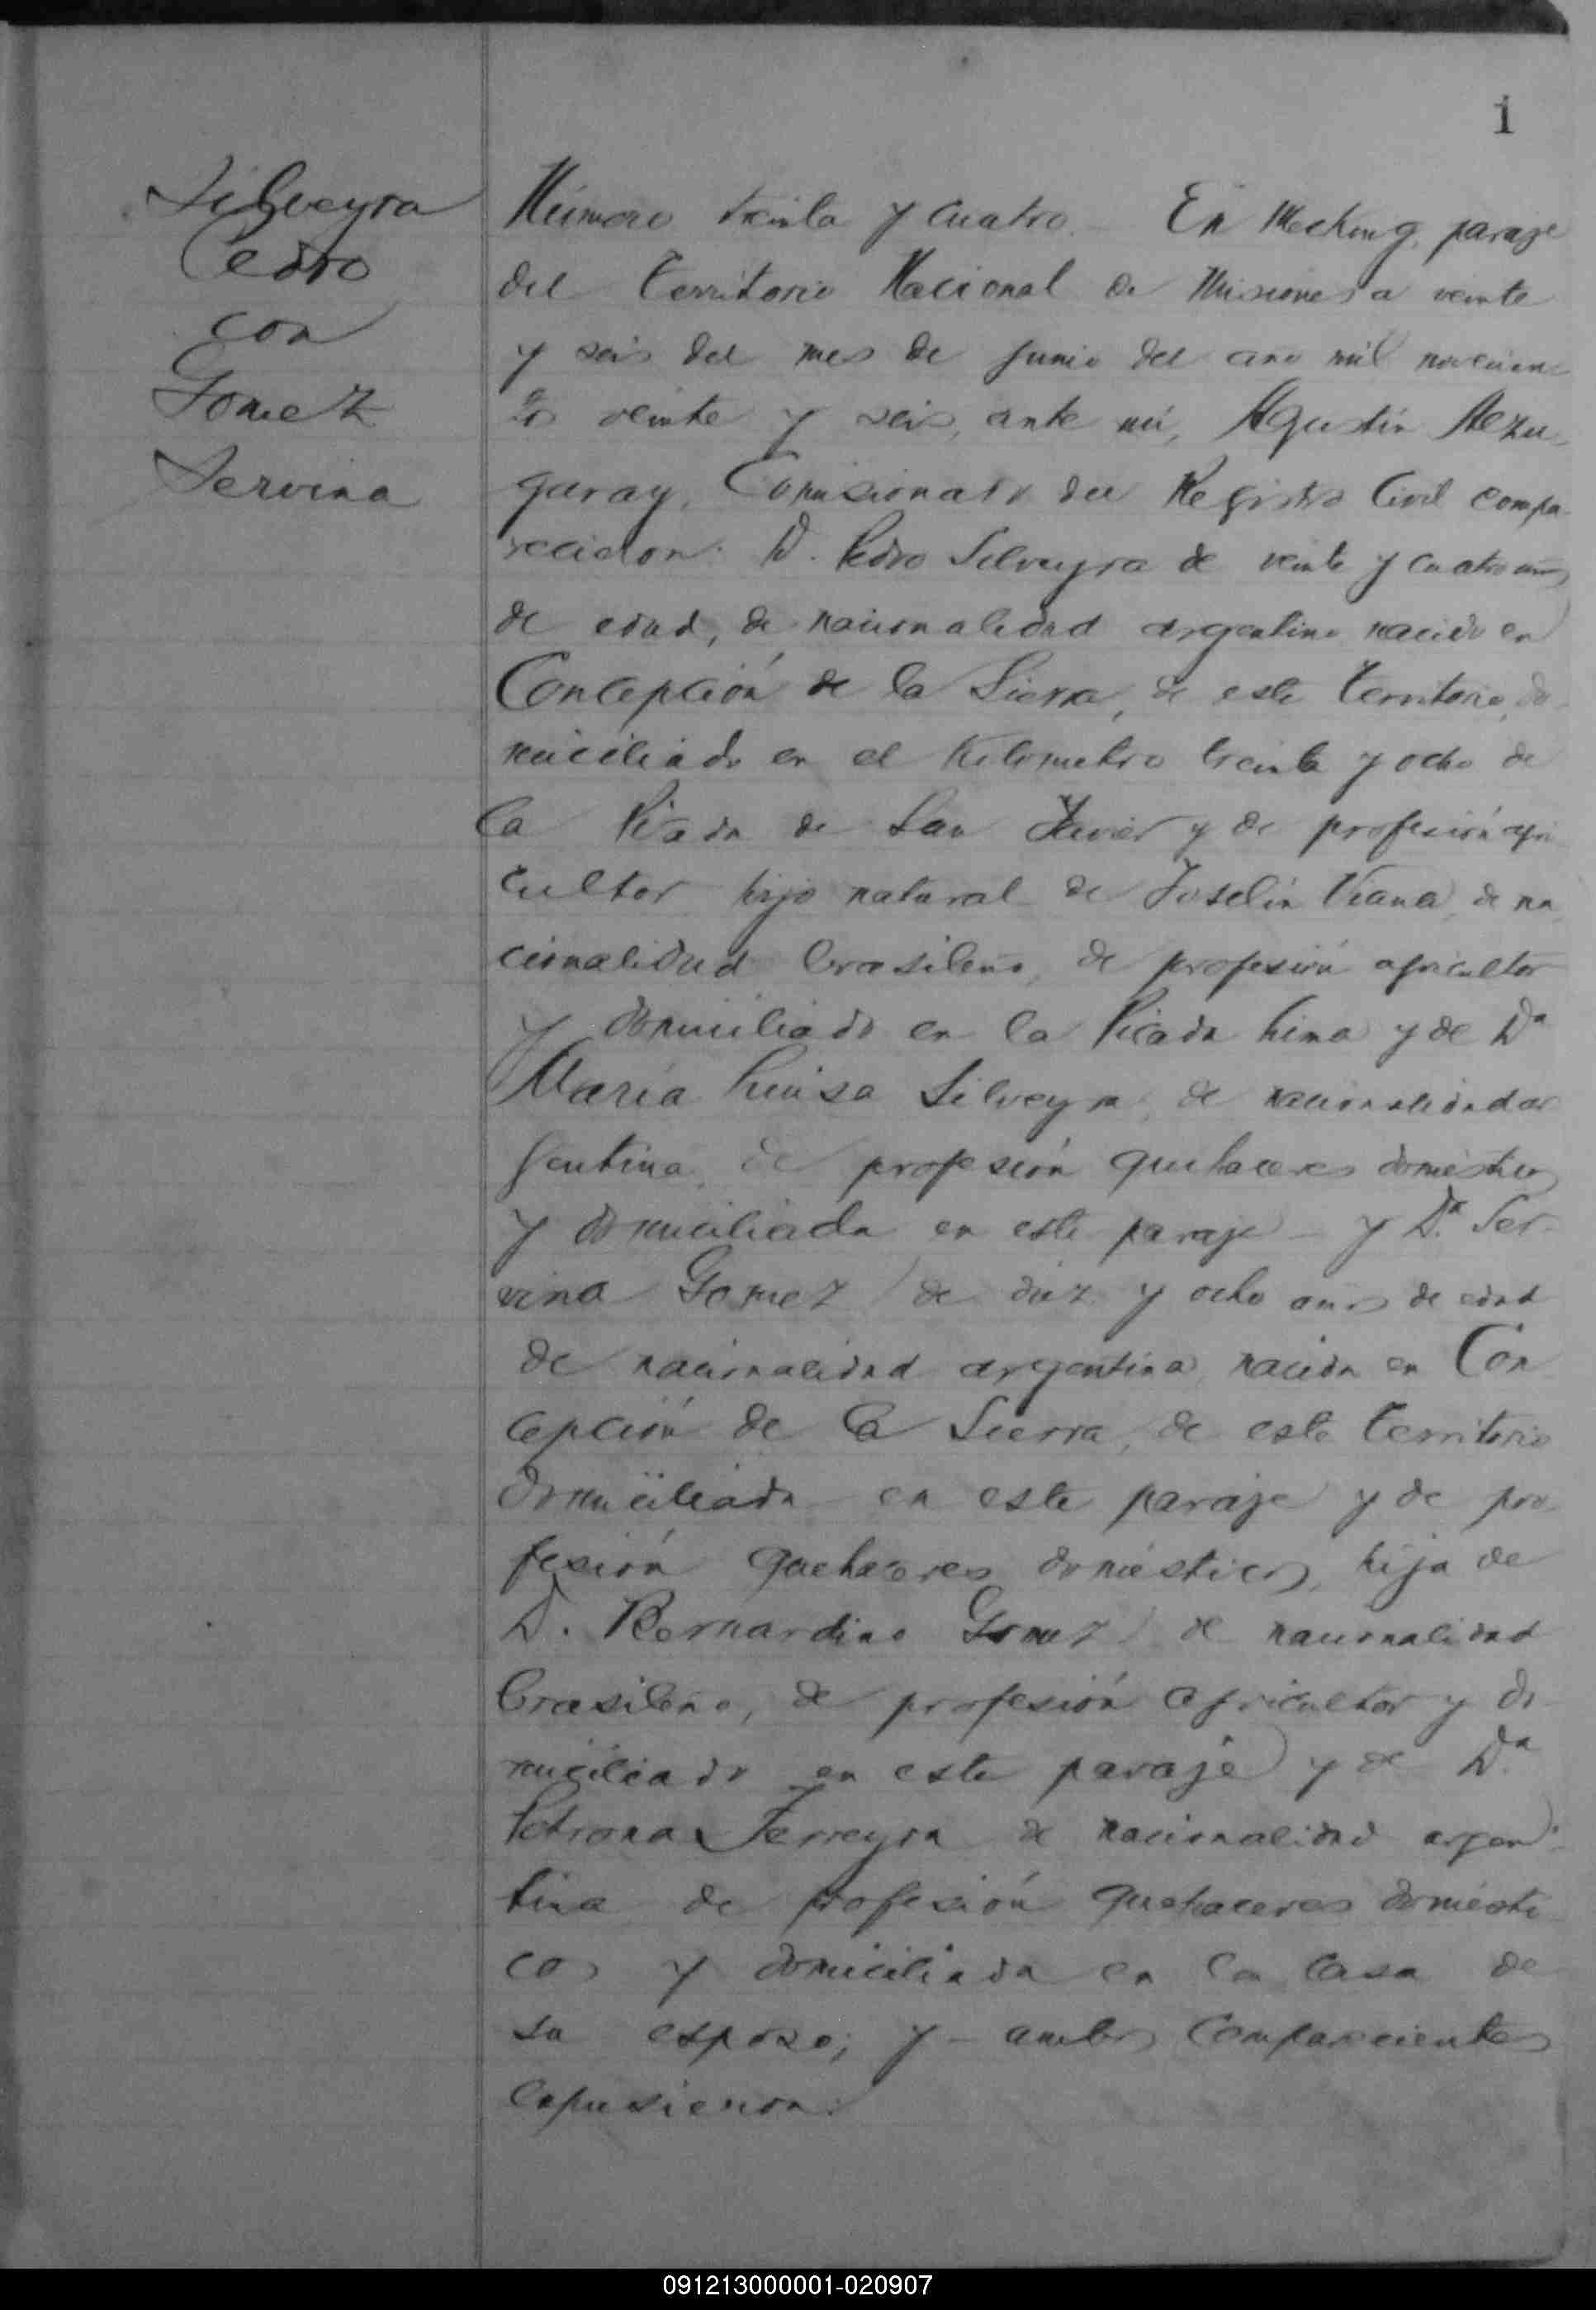 1
Silveyra
Pedro
con
Gomez
Servina
Número treinta y cuatro. - En Mecking, paraje
del Territorio Nacional de Misiones a veinte
y seis del mes de Junio del año mil novecien-
tos veinte y seis, ante mí, Agustín
garay, Comisionado del Registro Civil compa-
recieron: D. Pedro Silveyra de veinte y cuatro años
de edad, de nacionalidad argentino nacido en
Concepción de la Sierra, de este Territorio, do-
miciliado en el Kilometro treinta y ocho de
la Picada de San Javier y de profesión agri
cultor hijo natural de Joselin Viana, de na
cionalidad brasileño, de profesión agricultor
y domiciliado en la Picada Lima y de Da
María Luisa Silveyra, de nacionalidad ar
gentina, de profesión quehaceres domésticos
y domiciliada en este paraje - y Da. Ser-
vina Gomez de diez y ocho años de edad
de nacionalidad argentina nacida en Con
cepción de la Sierra, de este Territorio
domiciliada en este paraje y de pro
fesión quehaceres domésticos, hija de
D. Bernardino Gomez de nacionalidad
brasileño, de profesión agricultor y do
miciliado en este paraje y de Da.
Petrona Ferreyra de nacionalidad argen-
tina de profesión quehaceres domésti
cos y domiciliada en la casa de
su esposo; y - ambos comparecientes
expusieron:
091213000001-020907